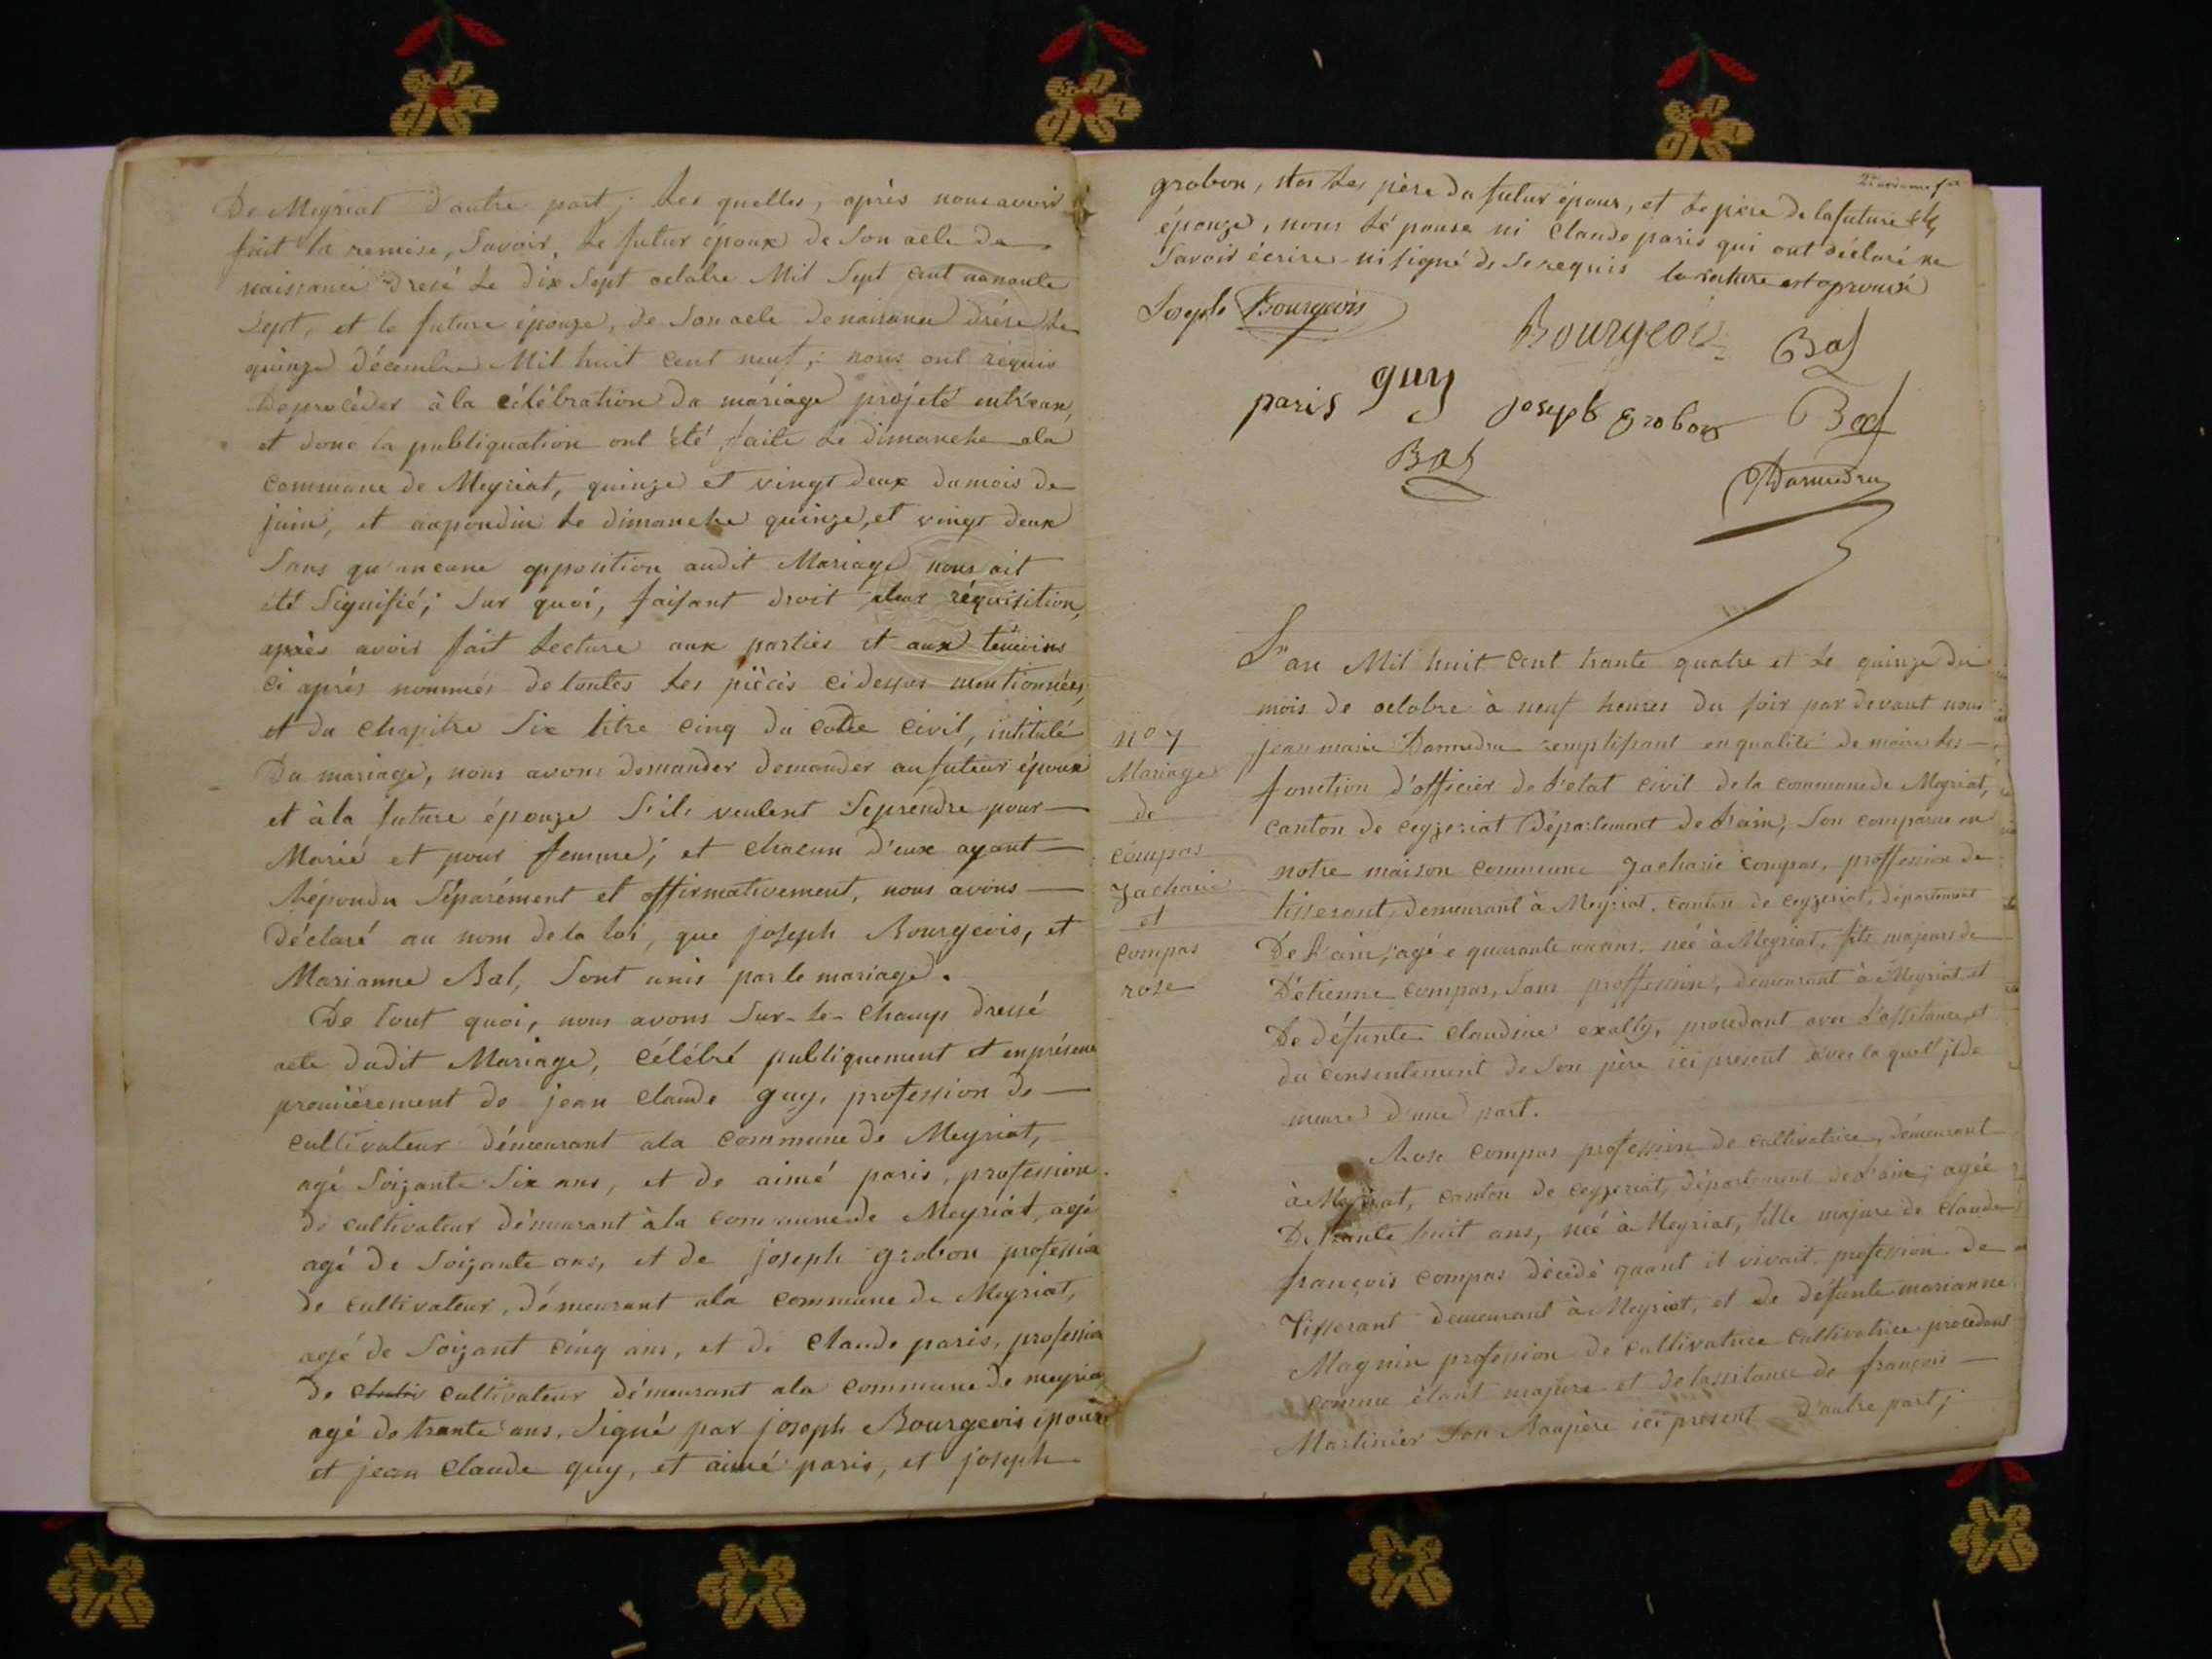 De Meyriat d'autre part; Les quelles, après nous avoir
fait la remise, Savoir, Le futur époux de Son acte de
naissance dresé Le dix Sept octobre Mil Sept cent nonante
Sept, et la future épouze, de Son acte de naissance drésé Le
quinze décembre Mil huit cent neuf; nous ont réquis
De procéder à la célébration du máriage projeté entr'eux,
et donc la publiquation ont été faite Le dimanche ala
commune de Meyriat, quinze et vingt deux du mois de
juin, et aupondin Le dimanche quinze, et vingt deux
Sans qu'aucune opposition audit Mariage nous ait
été Signifié; Sur quoi, faisant droit aleur réquisition,
après avoir fait Lecture aux parties et aux témoins
ci après nommés de toutes Les pièces ci dessus mentionnées,
et du chapitre Six titre cinq du code civil, intitulé
Du mariage, nous avons demander demander au futur époux
et à la future épouze S'ils veulent Se prendre pour
Marié et pour femme; et chacun d'eux ayant
Répondu Séparément et affirmativement, nous avons
Déclaré au nom de la loi, que joseph Bourgeois, et
Marianne Bal, Sont unis par le mariage.
De tout quoi, nous avons Sur-Le-Champ dressé
acte dudit Mariage, célébré publiquement et en présence
premièrement de jean claude guy, profession de
cultivateur démeurant ala commune de Meyriat,
agé Soizante Six ans, et de aimé paris, profession
de cultivateur démeurant à la commune de Meyriat, agé
agé de Soizante ans, et de joseph grobon profession
de cultivateur, démeurant ala commune de Meyriat,
agé de Soizant cinq ans, et de claude paris, profession
de cultivateur démeurant ala commune de meyria
agé de trante ans. Signé par joseph Bourgeois époux
et jean claude guy, et aimé paris, et joseph
grobon, père du futur époux, et Le père de la future
épouze, nous ni claude paris qui ont déclaré ne
Savoir écrire ni signé de Se requis la rature est aprouvé
Joseph Bourgeois
Bourgeois Bal
paris guy joseph grobon Bal
Bal
Darmedru
n° 7
Mariage
de
compas
Zacharie
et
compas
rose
L'an Mil huit Cent trante quatre et Le quinze du
mois de octobre à neuf heures du soir par devant nous
jean marie Darmedru remplissant en qualité de maire Les
fonction d'officier de L'etat civil de la commune de Meyriat,
canton de ceyzeriat Département de L'ain, Son comparue en
notre maison commune Zacharie compas, proffession de
tisserant, demeurant à Meyriat. canton de ceyzeriat, département
De L'ain; agé e quarante ans. neé à Meyriat, fils majeur de
D'étienne compas, Sans proffession, demeurant à Meyriat et
De défunte claudine exally, procedant avec L'assistance, et
du consentement de Son père ici present avec la quel il de
meure d'une part.
Rose compas profession de cultivatrice, démeurant
à Meyriat, canton de ceyzeriat, département de L'ain; agée
De trante huit ans, neé à Meyriat, fille majure de Claude
françois compas décidé quant il vivait profession de
Tisserant demeurant à Meyriat, et de défunte marianne
Magnin profession de cultivatrice cultivatrice procédant
comme étant majure et de lassistance de françois
Martinier Son Baupère ici présent d'autre part;